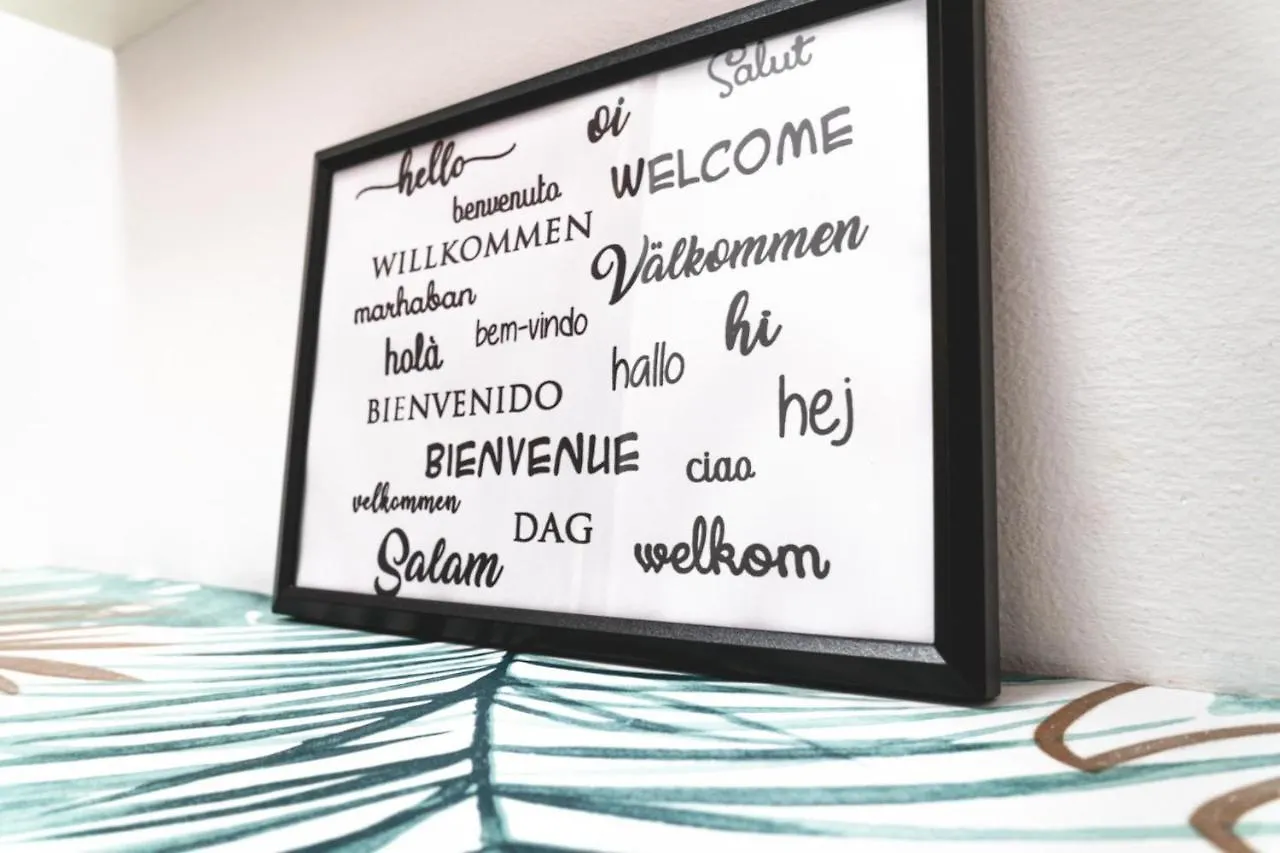 Salut
oi
hello
WELCOME
benvenuto
WILLKOMMEN
Välkommen
marhaban
bem-vindo
hi
holà
hallo
BIENVENIDO
hej
BIENVENUE
ciao
velkommen
DAG
Salam
welkom